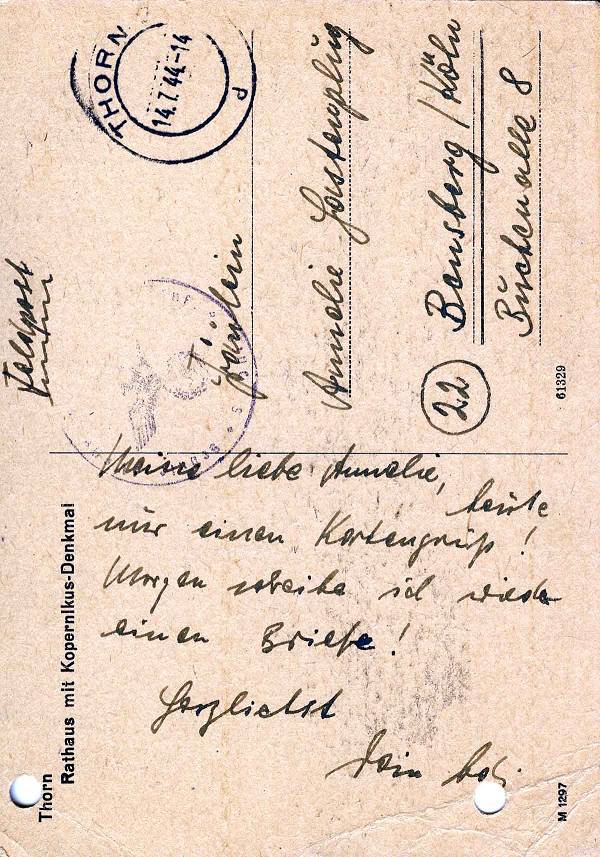 Feldpost
THORN
14.7.44-14
Fräulein
Annelie
(22) Bensberg / Köln
Buchenallee 8
61329
Meine liebe Annelie,
heute
nur einen Kartengruß!
Morgen schreibe ich wieder
einen Briefe!
Herzlichst
Dein
Thorn
Rathaus mit Kopernikus-Denkmal
M 1297